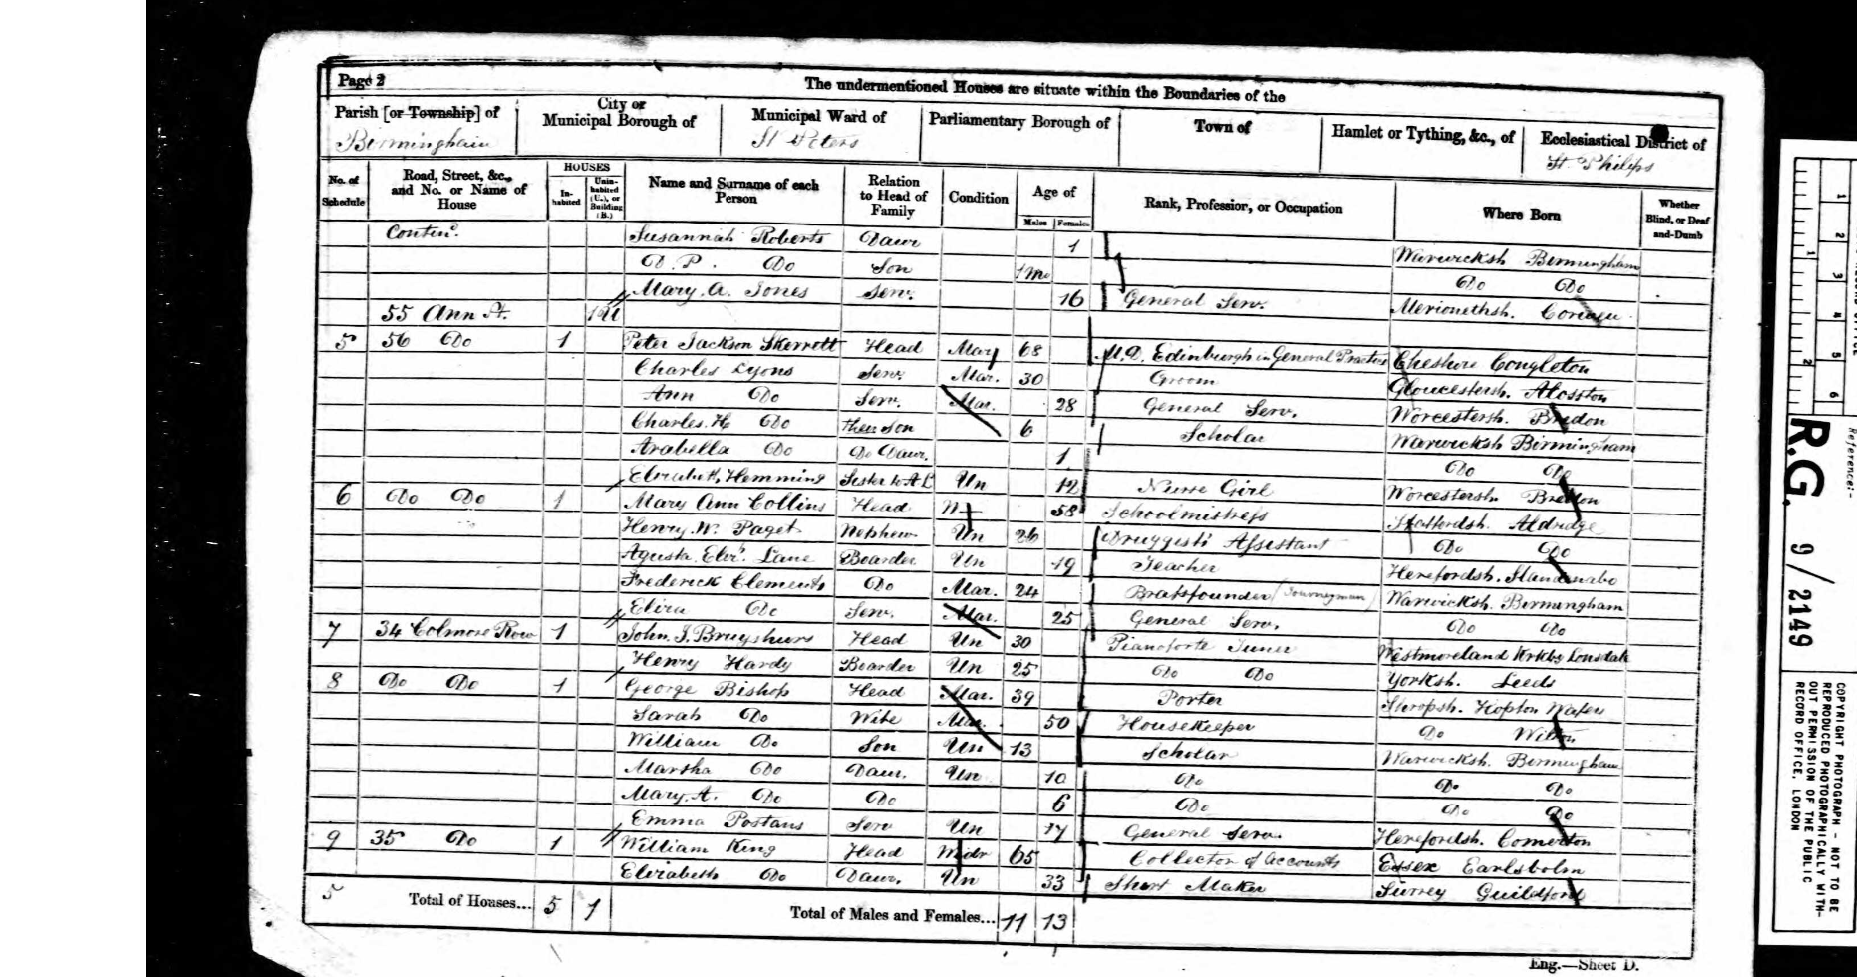 Page 2
The undermentioned Houses are situate within the Boundaries of the
Parish [or Township] of
Birmingham
City or
Municipal Borough of
Municipal Ward of
St Peters
Parliamentary Borough of
Town of
Hamlet or Tything, &c., of
Ecclesiastical District of
St Philips
No. of Schedule
Road, Street, &c., and No. or Name of House
HOUSES
In-habited
Unin-habited (U.), or Building (B.)
Name and Surname of each Person
Relation to Head of Family
Condition
Age of
Males
Females
Rank, Profession, or Occupation
Where Born
Whether Blind, or Deaf and-Dumb
Contind. Susannah Roberts Daur 1 Warwicksh Birmingham
D. P. Do Son 1 mo Do Do
Mary. A. Jones Serv. 16 General Serv. Merionethsh.
55 Ann St. 1 U
5 56 Do 1 Peter Jackson Skerrett Head Mar 68 M.D. Edinburgh in General Practice Cheshire Congleton
Charles Lyons Serv. Mar. 30 Groom Gloucestersh. Alosston
Ann Do Serv. Mar. 28 General Serv. Worcestersh. Bredon
Charles. H Do their Son 6 Scholar Warwicksh Birmingham
Arabella Do Do Daur. 1 Do Do
Elizabeth Hemming Sister to A L Un 12 Nurse Girl Worcestersh Bredon
6 Do Do 1 Mary Ann Collins Head 58 Schoolmistress Staffordsh. Aldridge
Henry. W. Paget Nephew Un 26 Druggists Assistant Do Do
Agusta. Elizh. Lane Boarder Un 19 Teacher Herefordsh.
Frederick Clements Do Mar. 24 Brassfounder (Journeyman) Warwicksh. Birmingham
Eliza Do Serv. Mar. 25 General Serv. Do Do
7 34 Colmore Row 1 John. J. Head Un 30 Pianoforte Tuner Westmoreland Kirkby Lonsdale
Henry Hardy Boarder Un 25 Do Do Yorksh. Leeds
8 Do Do 1 George Bishop Head Mar. 39 Porter Shropsh. Hopton Wafers
Sarah Do Wife Mar. 50 Housekeeper Do Wilton
William Do Son Un 13 Scholar Warwicksh. Birmingham
Martha Do Daur. Un 10 Do Do Do
Mary. A. Do Do 6 Do Do Do
Emma Postans Serv Un 17 General Serv. Herefordsh.
9 35 Do 1 William King Head Widr 65 Collector of Accounts Essex Earlsholm
Elizabeth Do Daur. Un 33 Shirt Maker Surrey Guildford
5 Total of Houses... 5 1 Total of Males and Females... 11 13
Eng.—Sheet D.
Reference:-
R.G. 9/2149
COPYRIGHT PHOTOGRAPH - NOT TO BE
REPRODUCED PHOTOGRAPHICALLY WITH-
OUT PERMISSION OF THE PUBLIC
RECORD OFFICE, LONDON